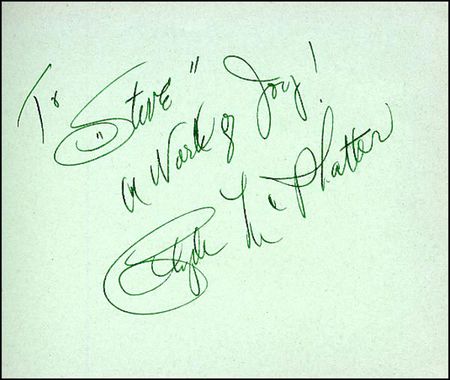 To "Steve"
a Work of Joy!
Clyde McPhatter